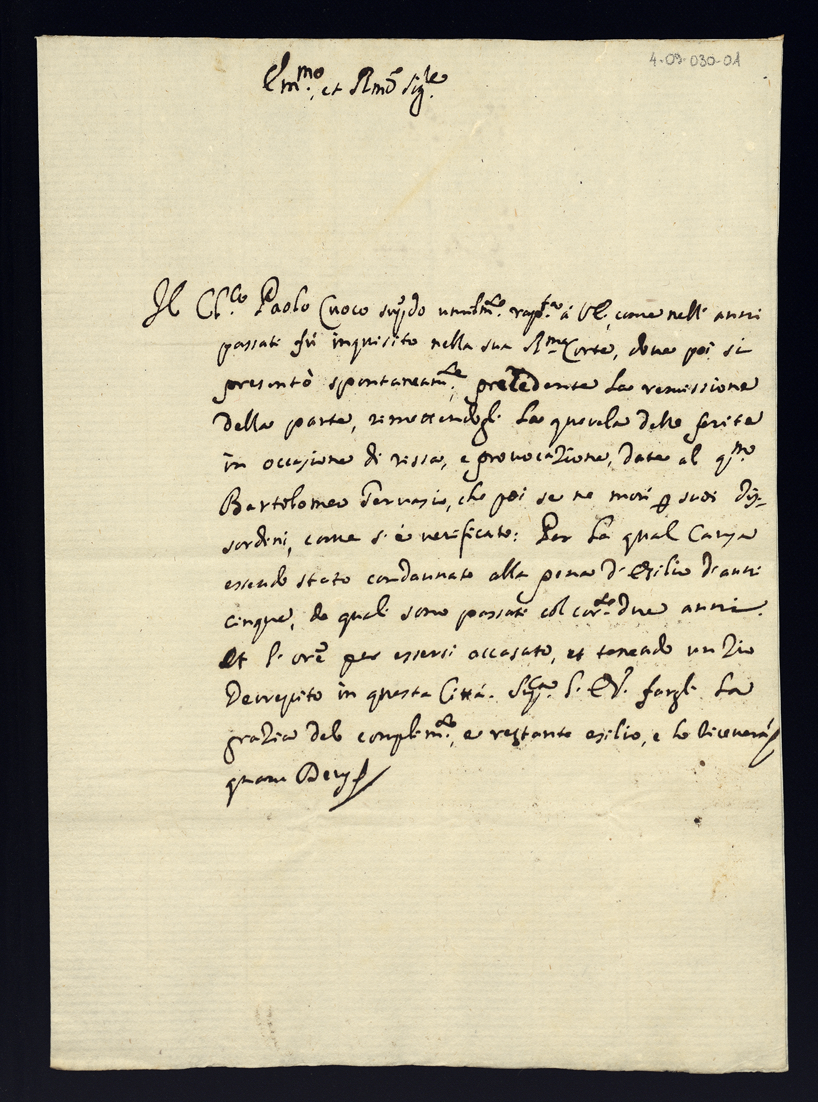 4-09-030-01
Em.mo et R.mo Sig.re
Il Ch.co Paolo Cuoco supp.do umilm.te rapp.ta á V.E. come nell'anni
passati fù inquisito nella sua R.ma Corte, dove poi si
presentò spontaneam.te precedente la remissione
della parte, rimettendogli la querela delle ferite
in occasione di rissa, e provocazione, date al q.m
Bartolomeo Gervasio, che poi se ne morì p suoi dis-
sordini, come si è verificato: Per la qual causa
essendo stato condannato alla pena d'esilio d'anni
cinque, de quali sono passati col cor.te due anni.
Et l'ore per essersi accasato, et tenendo un Zio
decrepito in questa Città. Supp.ca l'E.V. fargli la
grazia del complim.to, e restante esilio, e lo riceverà
quam Deus